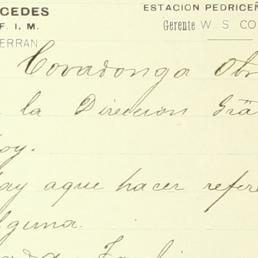 CEDES
F. I. M.
ERRAN
ESTACION PEDRICEÑ
Gerente W S CO
Covadonga Obr
la Direccion Gra
oy.
ay aque hacer refere
lguna.